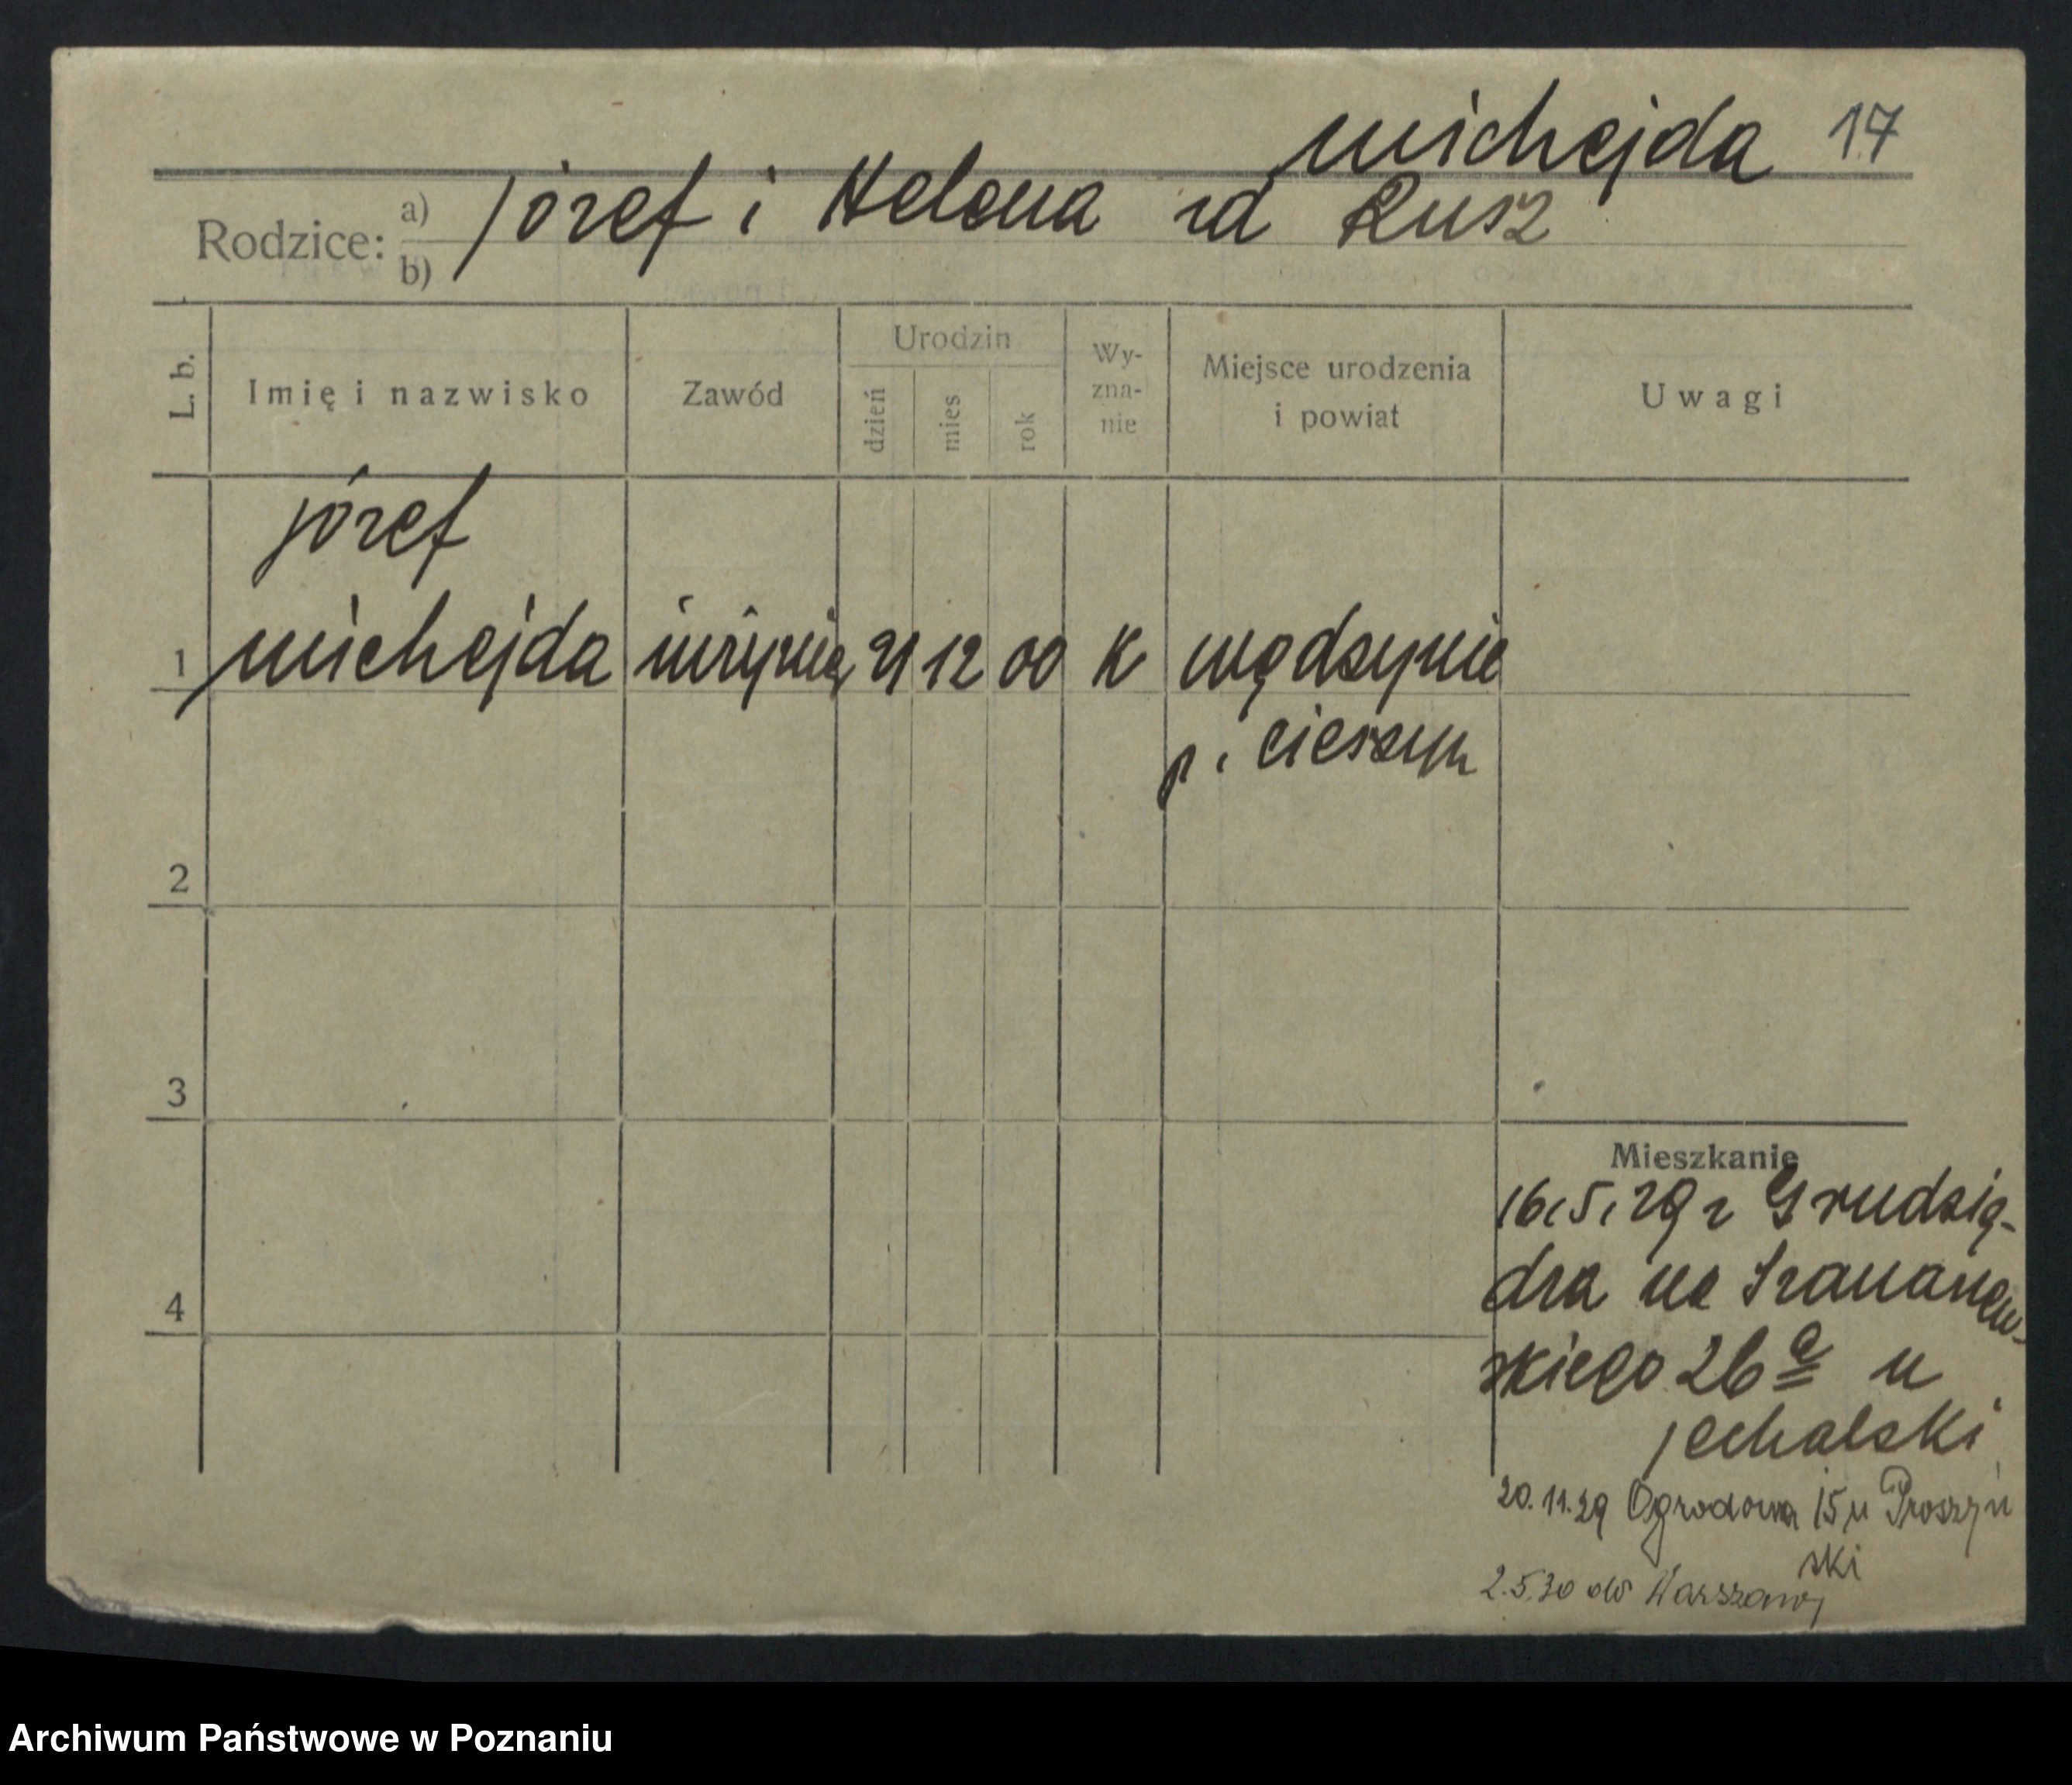 Michejda 17
Rodzice: a) b) Józef i Helena zd Rusz
L. b. Imię i nazwisko Zawód Urodzin dzień mies rok Wy-zna-nie Miejsce urodzenia i powiat Uwagi
Józef
1 Michejda 21 12 00 K Wędzynie
p. Cieszyn
2
3
4
Mieszkanie
16.5.29 z Grudzią-
dza na
skiego 26a u
Jechalski
20.11.29 Ogrodowa 15 u Proszyń
ski
2.5.30 do Warszawy
Archiwum Państwowe w Poznaniu